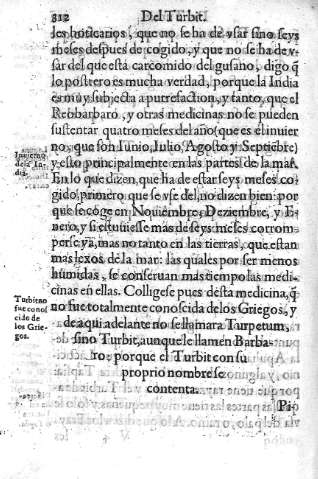 312 Del Turbit.
los boticarios, que no se ha de vsar sino seys
meses despues de cogido, y que no se ha de v-
sar del que està carcomido del gusano, digo q̃
lo postrero es mucha verdad, porque la India
es muy subjecta a putrefaction, y tanto, que el
Rebbarbaro, y otras medicinas no se pueden
sustentar quatro meses del año (que es el inuier
no, que son Iunio, Iulio, Agosto y Septiẽbre)
Inuierno
dela In-
dia.
y esto principalmente en las partes de la mar.
En lo que dizen, que ha de estar seys meses co-
gido, primero que se vse del, no dizen bien: por
que se coge en Nouiembre, Deziembre, y E-
nero, y si estuuiesse mas de seys meses corrom-
perse ya, mas no tanto en las tierras, que estan
mas lexos de la mar: las quales por ser menos
humidas, se conseruan mas tiempo las medi-
cinas en ellas. Colligese pues desta medicina, q̃
Turbit no
fue conos
cido de
los Grie-
gos.
no fue totalmente conoscida de los Griegos, y
de aqui adelante no se llamara Turpetum,
sino Turbit, aunque le llamẽ Barba-
ro: porque el Turbit con su
proprio nombre se
contenta.
Pi-